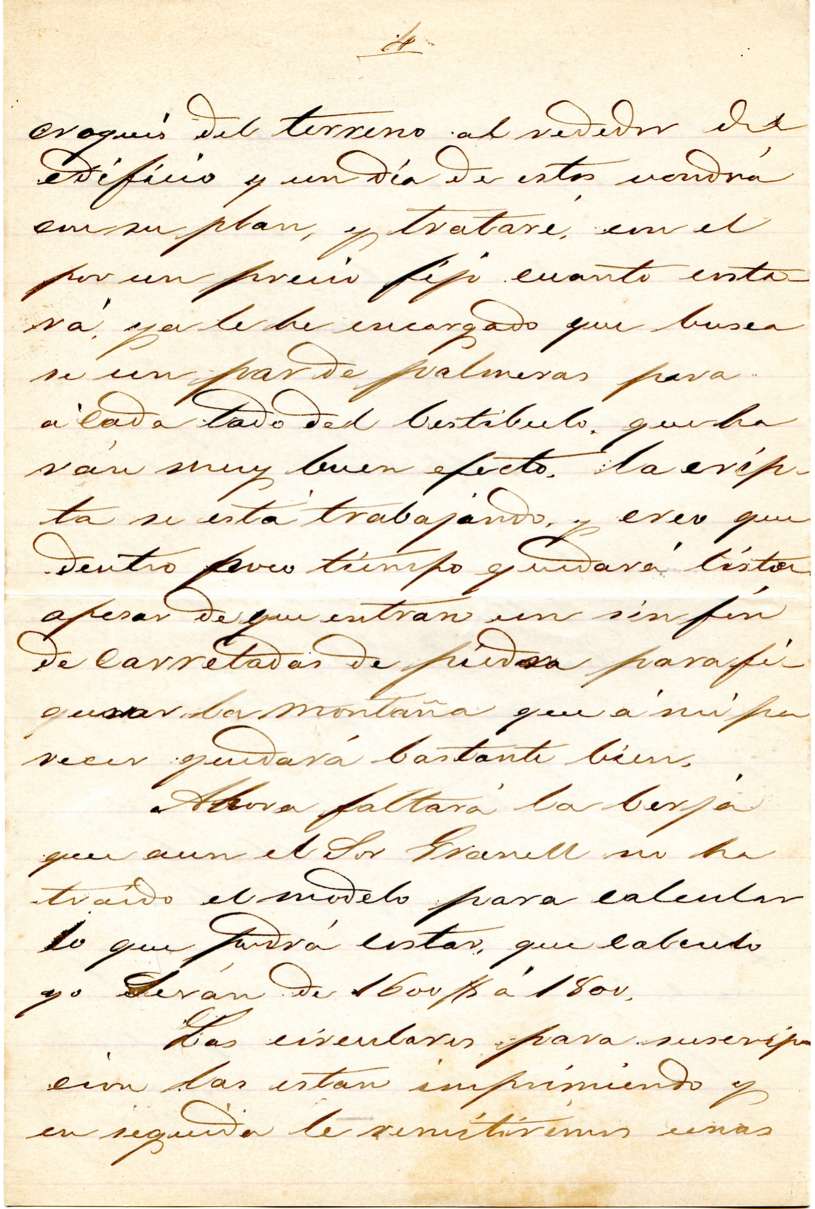 4
croquis del terreno al rededor del
edificio y un día de estos vendrá
con su plan, y trataré, con el
por un precio fijo cuanto costa-
rá, ya le he encargado que busca
se un par de palmeras para
á cada lado del bestibulo, que ha
rán muy buen efecto. la crip-
ta se está trabajando, y creo que
dentro poco tiempo quedará lista
apesar de que entran un sin fin
de carretadas de piedra para fi-
gurar la montaña que á mi pa
recer quedará bastante bien.
Ahora faltará la berja
que aun el Sor Granell no ha
traido el modelo para calcular
lo que podrá costar, que calculo
yo serán de 1600 $ á 1800.
Las circulares para suscrip
cion las estan imprimiendo y
en seguida le remitiremos unas